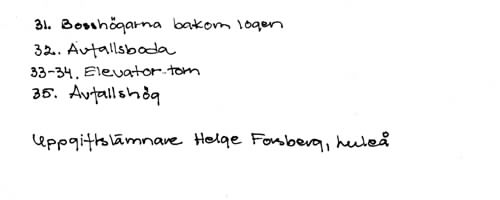 31. Bosshögarna bakom logen
32. Avfallsboda
33-34. Elevator-torn
35. Avfallshög
Uppgiftslämnare Helge Forsberg, Luleå